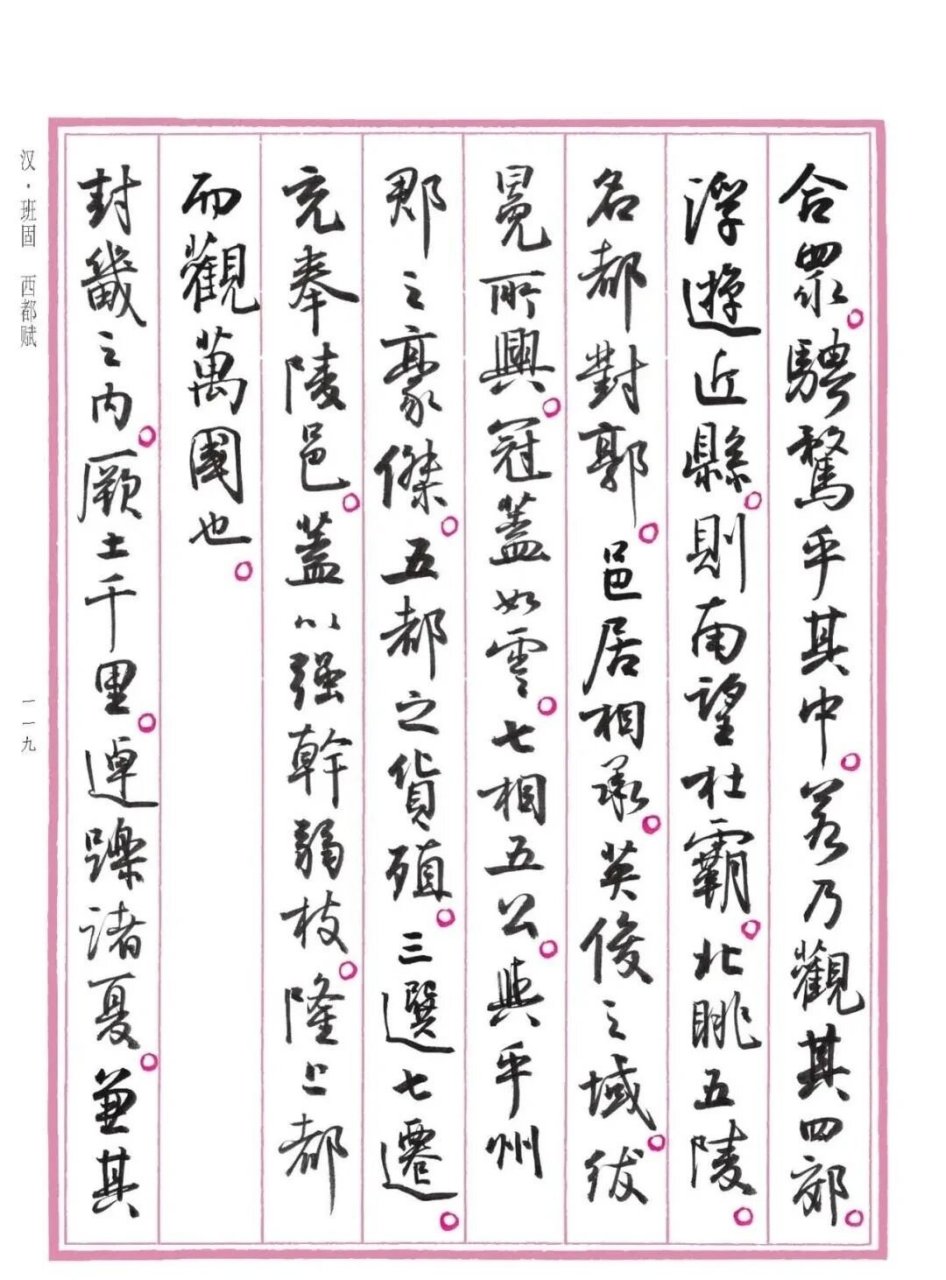 合眾。騁騖乎其中。若乃觀其四郊。
浮遊近縣。則南望杜霸。北眺五陵。
名都對郭。邑居相承。英俊之域。紱
冕所興。冠蓋如雲。七相五公。與乎州
郡之豪傑。五都之貨殖。三選七遷。
充奉陵邑。蓋以强幹弱枝。隆上都
而觀萬國也。
封畿之内。厥土千里。逴躒諸夏。兼其
汉·班固 西都赋
一一九